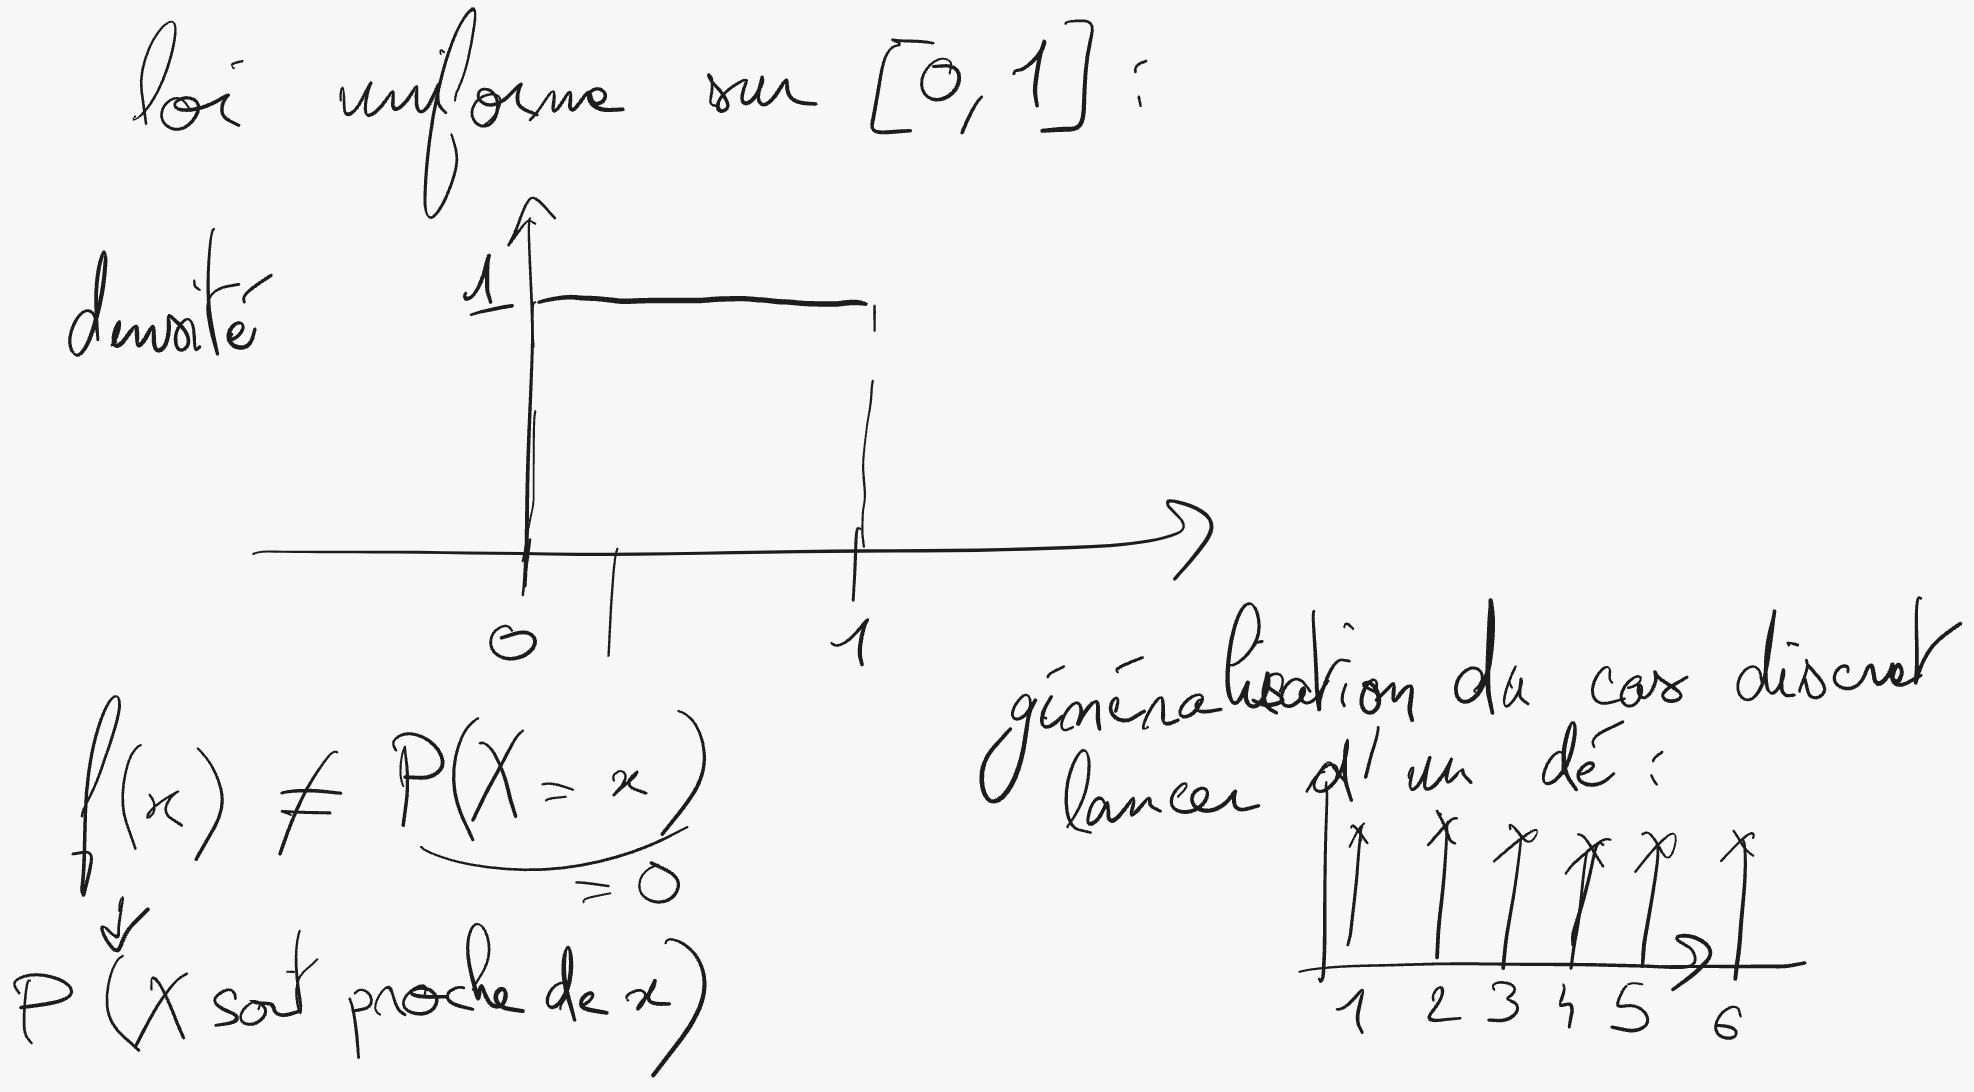 loi uniforme sur [0, 1] :
densité
1
0 1
f(x) ≠ P(X = x)
= 0
↓
P(X soit proche de x)
généralisation du cas discret
lancer d'un dé :
1 2 3 4 5 6